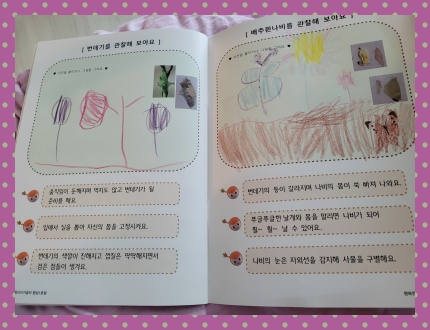 [ 번데기를 관찰해 보아요 ]
움직임이 둔해지며 먹지도 않고 번데기가 될
준비를 해요.
입에서 실을 뽑아 자신의 몸을 고정시켜요.
번데기의 색깔이 진해지고 껍질은 딱딱해지면서
검은 점들이 생겨요.
[ 배추흰나비를 관찰해 보아요 ]
번데기의 등이 갈라지며 나비의 몸이 쏙 빠져 나와요.
쭈글쭈글한 날개와 몸을 말리면 나비가 되어
훨~ 훨~ 날 수 있어요.
나비의 눈은 자외선을 감지해 사물을 구별해요.